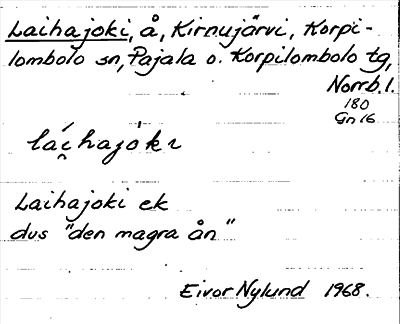 Laihajoki, å, Kirnujärvi, Korpi-
lombolo sn, Pajala o. Korpilombolo tg,
Norrb. l.
180
Gn 16
lái̯hajók ı
Laihajoki ek
dvs "den magra ån"
Eivor Nylund 1968.